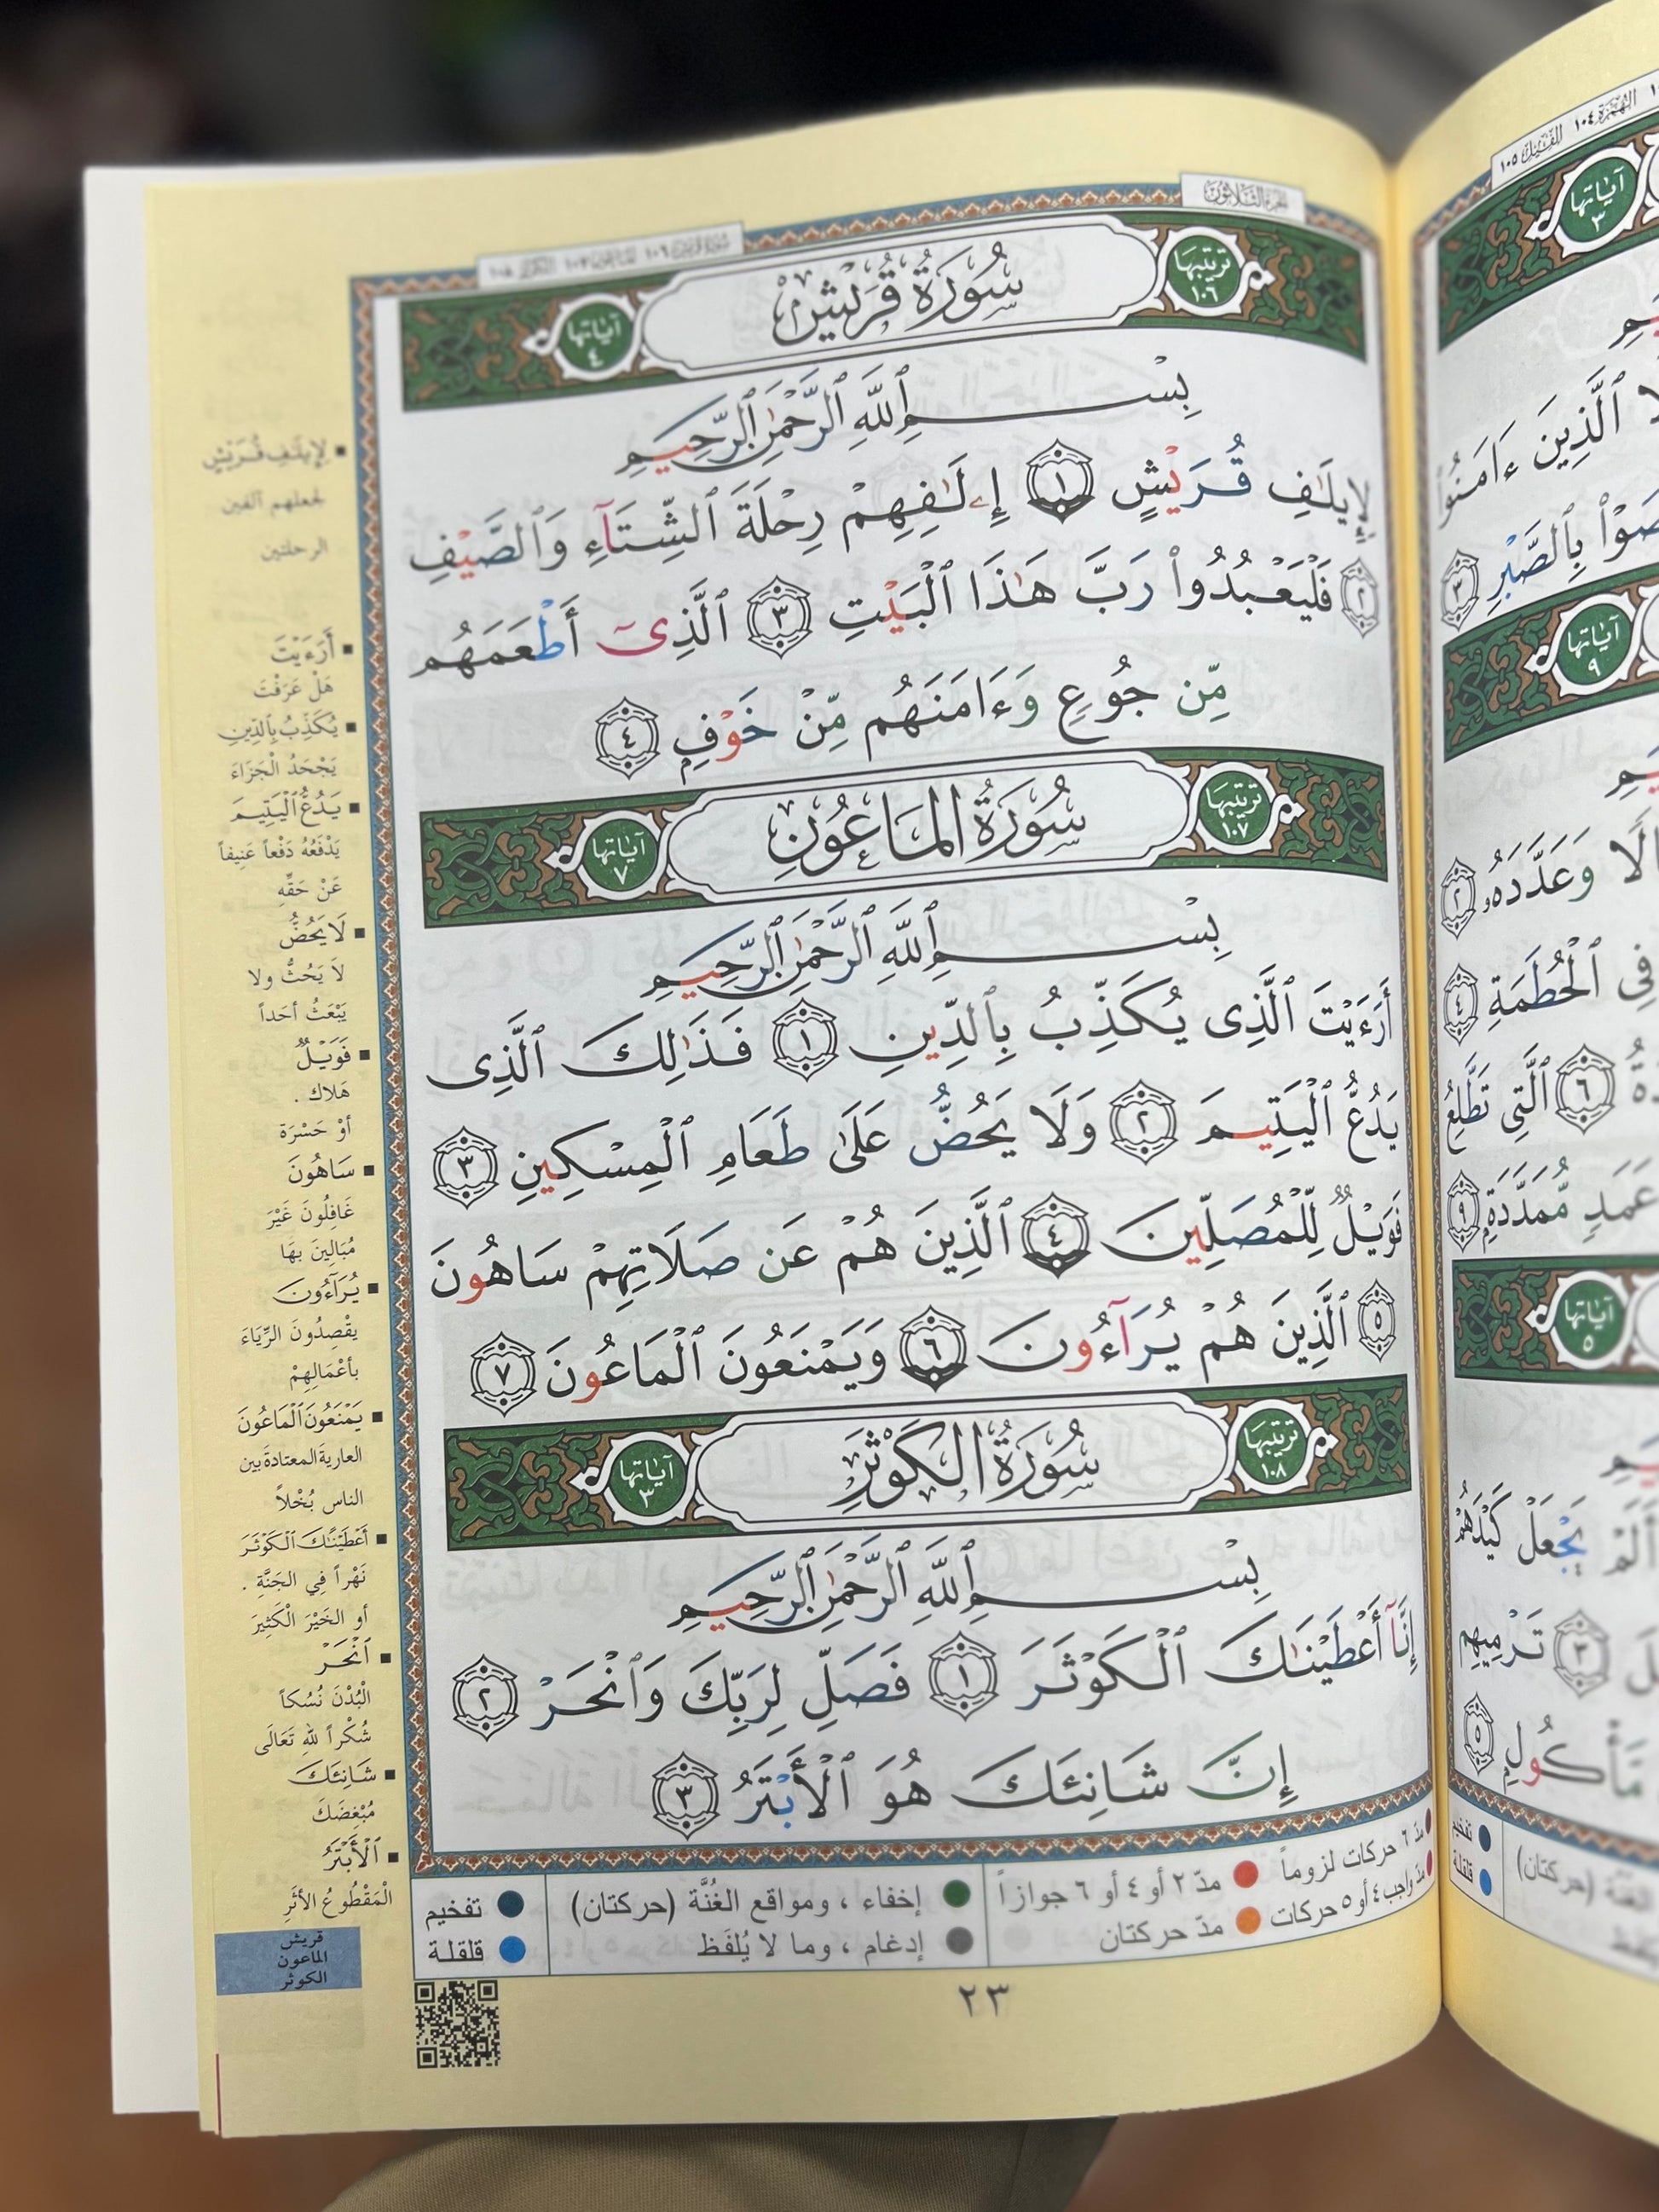 الجزء الثلاثون
سورة قريش ١٠٦ الماعون ١٠٧ الكوثر ١٠٨
ترتيبها ١٠٦
سُورَةُ قُرَيْشٍ
آياتها ٤
بِسْمِ ٱللَّهِ ٱلرَّحْمَٰنِ ٱلرَّحِيمِ
لِإِيلَٰفِ قُرَيْشٍ ١ إِۦلَٰفِهِمْ رِحْلَةَ ٱلشِّتَآءِ وَٱلصَّيْفِ
٢ فَلْيَعْبُدُوا۟ رَبَّ هَٰذَا ٱلْبَيْتِ ٣ ٱلَّذِىٓ أَطْعَمَهُم
مِّن جُوعٍ وَءَامَنَهُم مِّنْ خَوْفٍۭ ٤
ترتيبها ١٠٧
سُورَةُ المَاعُونِ
آياتها ٧
بِسْمِ ٱللَّهِ ٱلرَّحْمَٰنِ ٱلرَّحِيمِ
أَرَءَيْتَ ٱلَّذِى يُكَذِّبُ بِٱلدِّينِ ١ فَذَٰلِكَ ٱلَّذِى
يَدُعُّ ٱلْيَتِيمَ ٢ وَلَا يَحُضُّ عَلَىٰ طَعَامِ ٱلْمِسْكِينِ ٣
فَوَيْلٌ لِّلْمُصَلِّينَ ٤ ٱلَّذِينَ هُمْ عَن صَلَاتِهِمْ سَاهُونَ
٥ ٱلَّذِينَ هُمْ يُرَآءُونَ ٦ وَيَمْنَعُونَ ٱلْمَاعُونَ ٧
ترتيبها ١٠٨
سُورَةُ الكَوْثَرِ
آياتها ٣
بِسْمِ ٱللَّهِ ٱلرَّحْمَٰنِ ٱلرَّحِيمِ
إِنَّآ أَعْطَيْنَٰكَ ٱلْكَوْثَرَ ١ فَصَلِّ لِرَبِّكَ وَٱنْحَرْ ٢
إِنَّ شَانِئَكَ هُوَ ٱلْأَبْتَرُ ٣
لِإِيلَٰفِ قُرَيْشٍ
لجعلهم آلفين
الرحلتين
أَرَءَيْتَ
هَلْ عَرَفْتَ
يُكَذِّبُ بِٱلدِّينِ
يَجْحَدُ الْجَزَاءَ
يَدُعُّ ٱلْيَتِيمَ
يَدْفَعُهُ دَفْعاً عَنِيفاً
عَنْ حَقِّهِ
لَا يَحُضُّ
لاَ يَحُثُّ ولا
يَبْعَثُ أحَداً
فَوَيْلٌ
هَلاك .
أوْ حَسْرَة
سَاهُونَ
غَافِلُونَ غَيْرَ
مُبَالِينَ بهَا
يُرَآءُونَ
يقْصِدُونَ الرِّيَاءَ
بأعْمَالِهِمْ
يَمْنَعُونَ ٱلْمَاعُونَ
العارية المعتادة بين
الناس بُخْلاً
أَعْطَيْنَٰكَ ٱلْكَوْثَرَ
نَهْراً فِي الجَنَّةِ .
أو الخَيْرَ الْكَثِيرَ
ٱنْحَرْ
الْبُدْنَ نُسُكاً
شُكْراً للهِ تَعَالَى
شَانِئَكَ
مُبْغِضَكَ
ٱلْأَبْتَرُ
الْمَقْطُوعُ الأثَرِ
قريش
الماعون
الكوثر
مدّ ٦ حركات لزوماً
مدّ ٢ أو ٤ أو ٦ جوازاً
إخفاء ، ومواقع الغُنَّة (حركتان)
تفخيم
مدّ واجب ٤ أو ٥ حركات
مدّ حركتان
إدغام ، وما لا يُلفَظ
قلقلة
٢٣
الهُمَزَة ١٠٤ الفِيل ١٠٥
آياتها ٣
ٱلَّذِينَ ءَامَنُوا۟
بِٱلصَّبْرِ ٣
آياتها ٩
وَعَدَّدَهُۥ ٢
فِى ٱلْحُطَمَةِ ٤
٦ ٱلَّتِى تَطَّلِعُ
عَمَدٍ مُّمَدَّدَةٍۭ ٩
آياتها ٥
أَلَمْ يَجْعَلْ كَيْدَهُمْ
٣ تَرْمِيهِم
مَّأْكُولٍۭ ٥
تفخيم
قلقلة